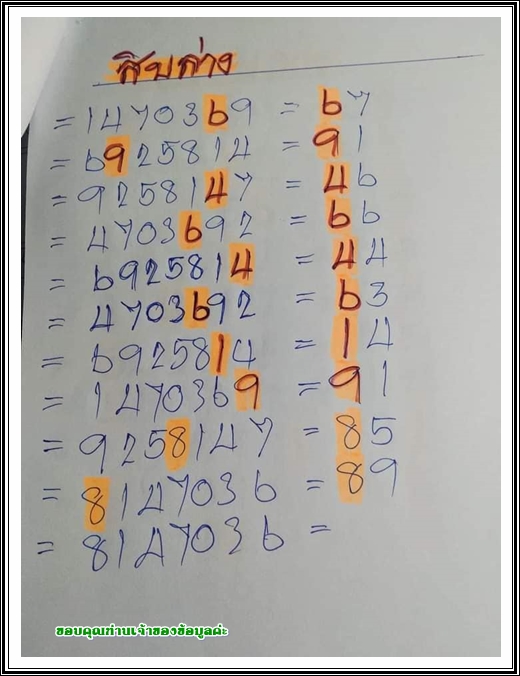 สิบล่าง
= 1470369 = 67
= 6925814 = 91
= 9258147 = 46
= 4703692 = 66
= 6925814 = 44
= 4703692 = 63
= 6925814 = 14
= 1470369 = 91
= 9258147 = 85
= 8147036 = 89
= 8147036 =
ขอบคุณท่านเจ้าของข้อมูลค่ะ